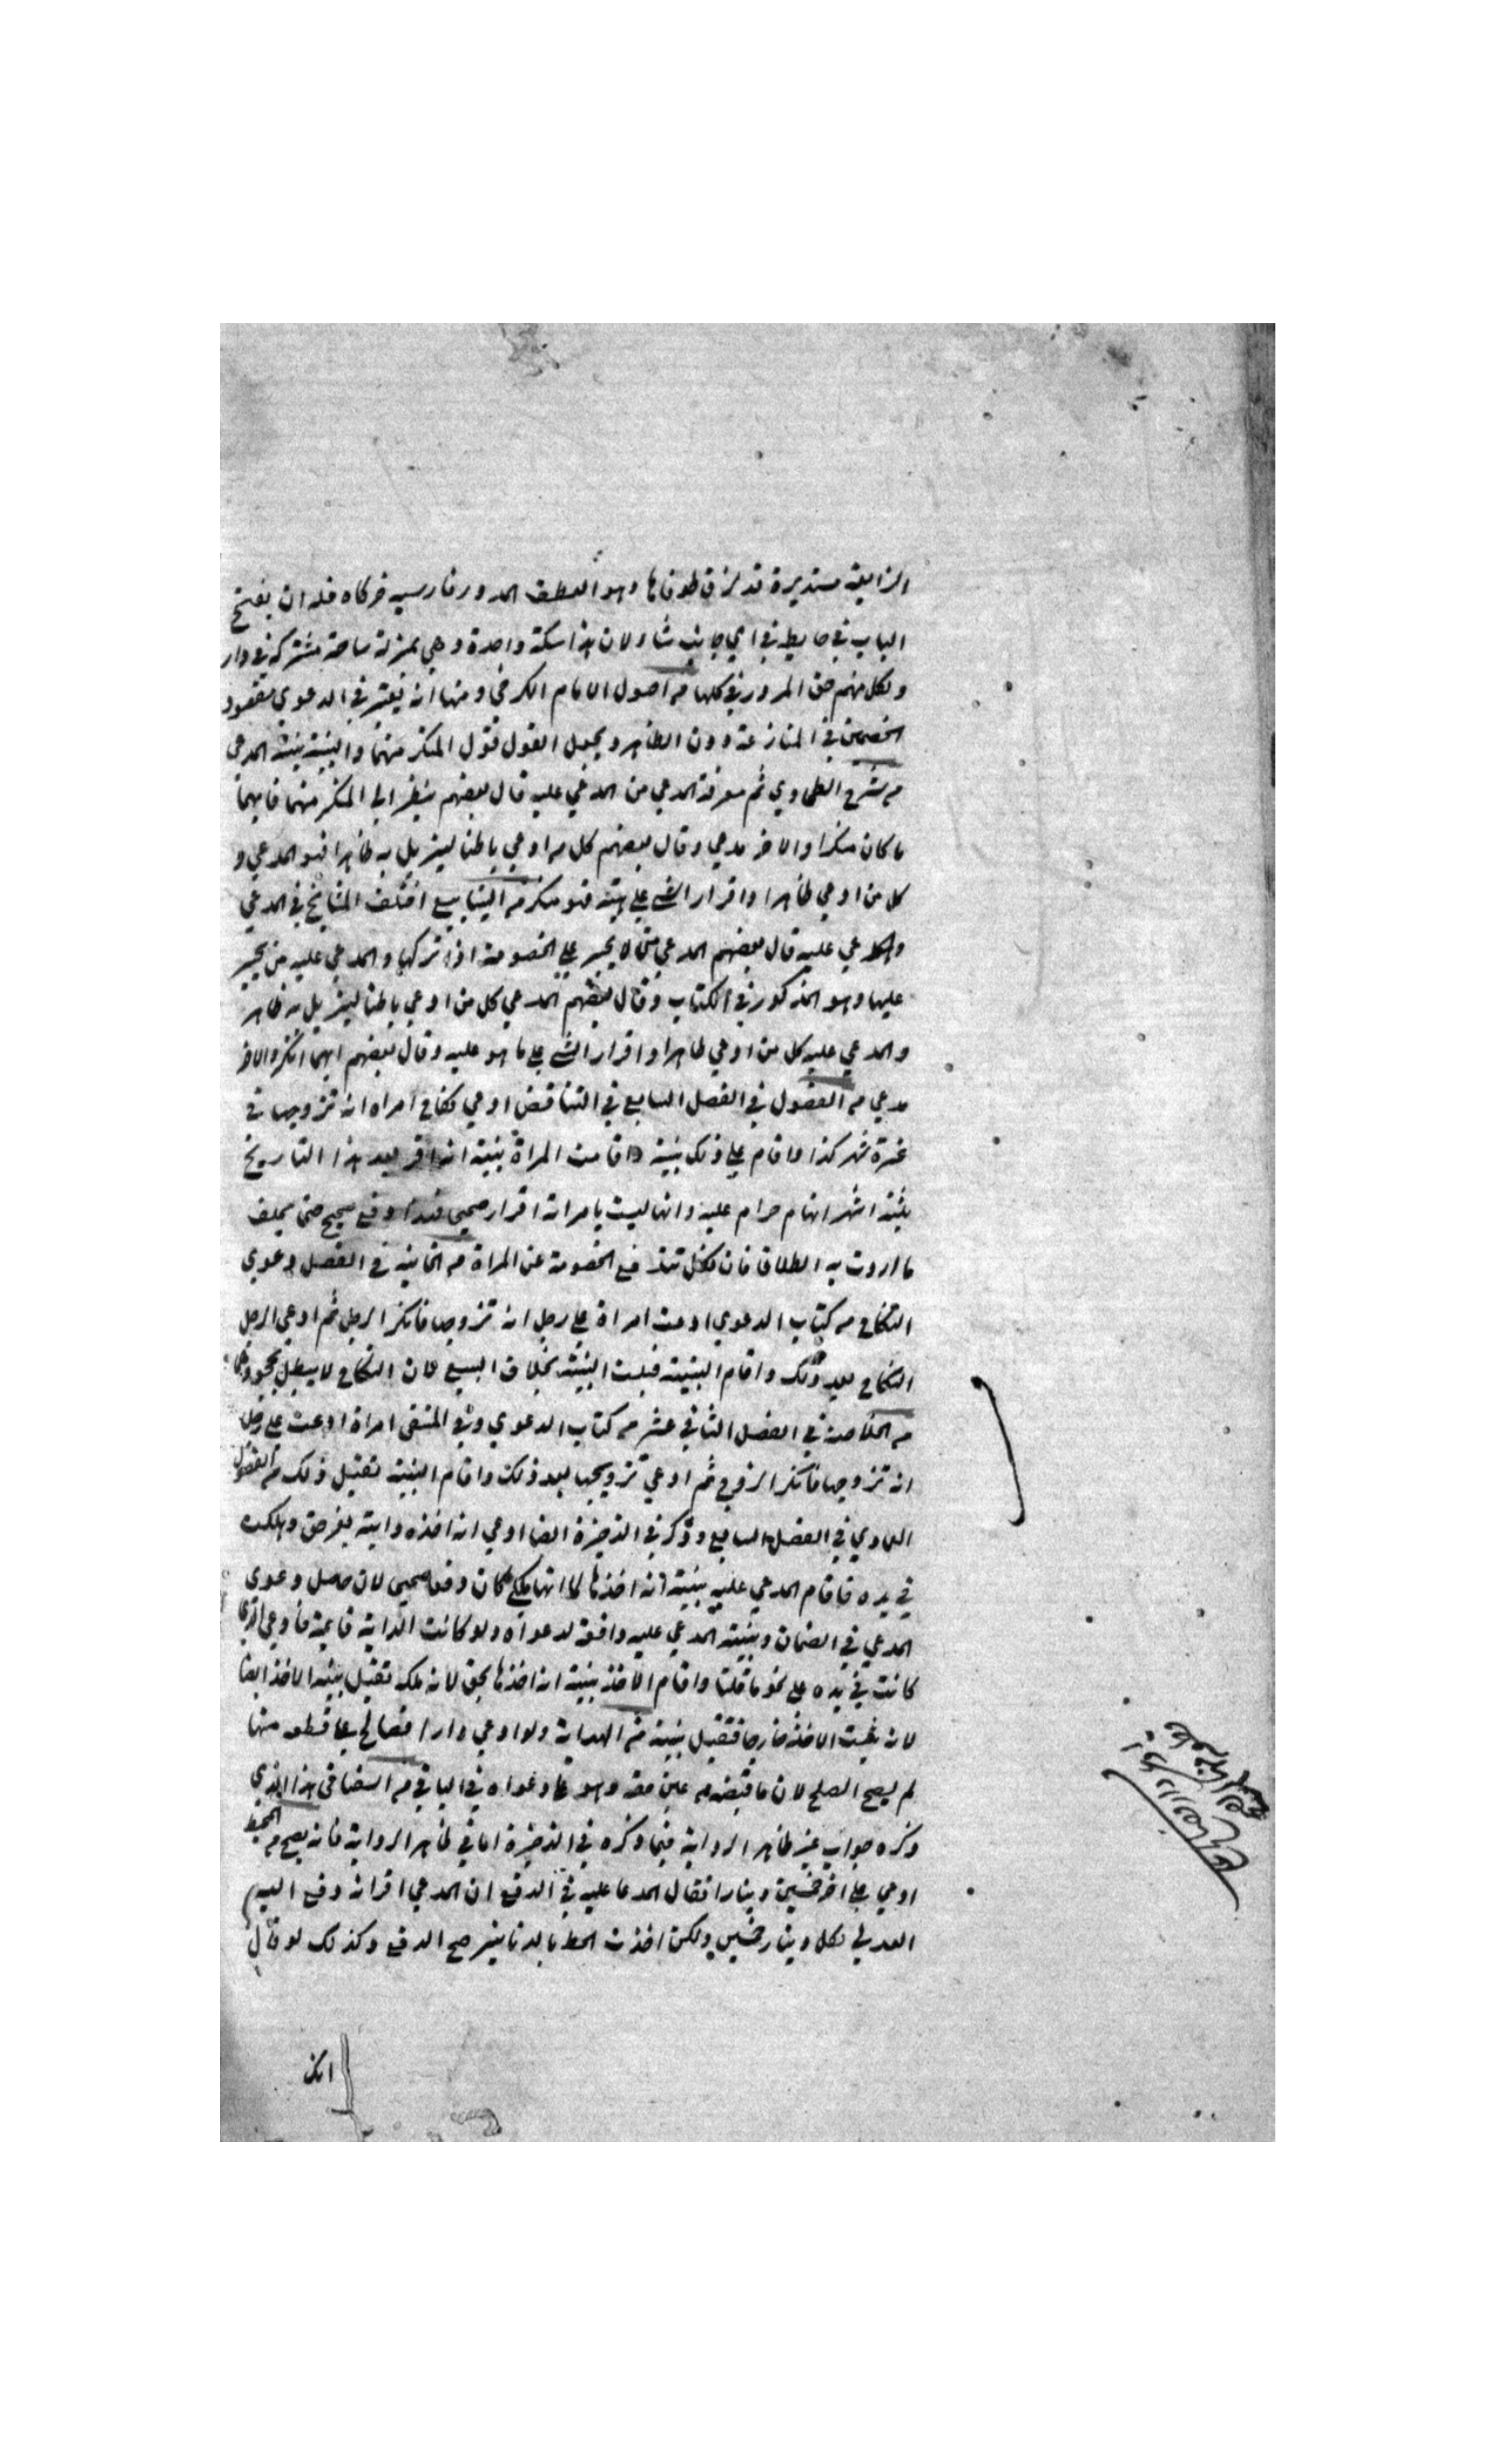 الزايغة مستديرة قد لزق طرفاها وهو العطف المدور فارسيه خركاه فله ان يفتح
الباب في حايط في اي جانب شاء لان هذا سكة واحدة وهي بمنزلة ساحة مشتركة في دار
ولكل منهم حق المرور في كلها من اصول الامام الكرخي ومنها انه يعتبر في الدعوي مقصود
الخصمين في المنازعة دون الظاهر ويجعل القول قول المنكر منهما والبينة بينة المدعي
من شرح الطحاوي ثم معرفة المدعي من المدعي عليه قال بعضهم ينظر الي المنكر منهما فايهما
ما كان منكرا والاخر مدعي وقال بعضهم كل من ادعي باطنا ليزيل به ظاهرا فهو المدعي و
كل من ادعي ظاهرا واقرار الشي علي هيئته فهو منكر من الينابيع اختلف المشايخ في المدعي
والمدعي عليه قال بعضهم المدعي من لا يجبر علي الخصومة اذا تركها والمدعي عليه من يجبر
عليها وهو المذكور في الكتاب وقال بعضهم المدعي كل من ادعي باطنا ليزيل به ظاهر
والمدعي عليه كل من ادعي ظاهرا واقرار الشي علي ما هو عليه وقال بعضهم ايهما انكر والاخر
مدعي من الفصول في الفصل السابع في التناقض ادعي نكاح امراه انه تزوجها في
غرة شهر كذا واقام علي ذلك بينة واقامت المراة بينة انه اقر بعد هذا التاريخ
بثلثة اشهر انها حرام عليه وانها ليست بامراته اقرار صحيح فهذا دفع صحيح حتي يحلف
ما اردت به الطلاق فان نكل تندفع الخصومة عن المراة من الخانية في الفصل دعوي
النكاح من كتاب الدعوي ادعت امراة علي رجل انه تزوجها فانكر الرجل ثم ادعي الرجل
النكاح بعد ذلك واقام البينة قبلت البينة بخلاف البيع لان النكاح لا يبطل بجحودهما
من الخلاصة في الفصل الثاني عشر من كتاب الدعوي وفي المنتقي امراة ادعت علي رجل
انه تزوجها فانكر الزوج ثم ادعي تزويجها بعد ذلك واقام البينة تقبل ذلك من الفصول
العمادي في الفصل السابع وذكر في الذخيرة ايضا ادعي انه اخذه دابته بغير حق وهلكت
في يده فاقام المدعي عليه بينة انه اخذها لما انها ملكه كان دفعا صحيحا لان حاصل دعوي
المدعي في الضمان وبينة المدعي عليه دافعة لدعواه ولو كانت الدابة قايمة فادعي انها
كانت في يده علي نحو ما قلنا واقام الاخذ بينة انه اخذها بحق لانه ملكه تقبل بينة الاخذ ايضا
لانه الاخذ خارجا فتقبل بينة من الهداية ولو ادعي دارا فصالح علي قطعه منها
لم يصح الصلح لان ما قبضه من عين حقه وهو علي دعواه في الباقي من السغناقي هذا الذي
ذكره جواب غير ظاهر الرواية فيما ذكره في الذخيرة اما في ظاهر الرواية فانه يصح من المحيط
ادعي علي اخر خمسين دينارا فقال المدعا عليه في الدفع ان المدعي اقر انه دفع اليهم
العدلي لكل دينار خمسين ولكن اخذت الخط بالدنانير صح الدفع وكذلك لو قال
انك